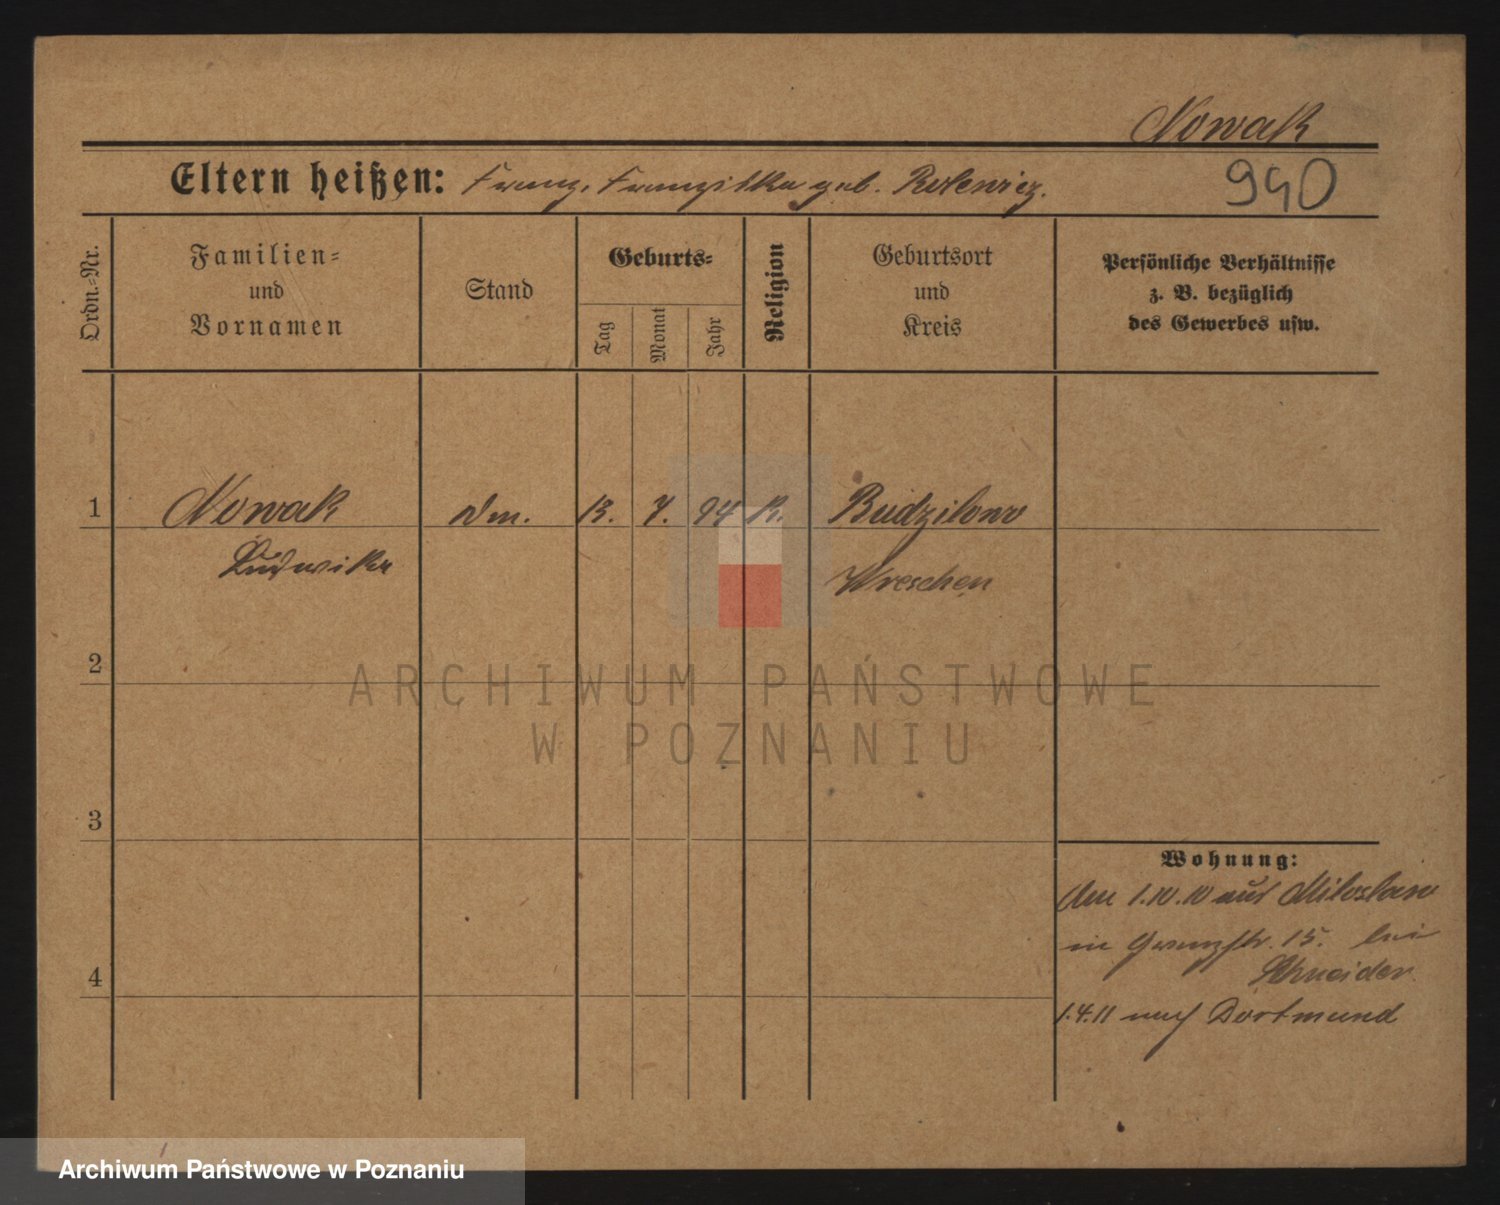 Nowak
Eltern heißen: Franz, Franziska geb. Rolewicz.
940
Ordn.-Nr.
Familien-
und
Vornamen
Stand
Geburts-
Tag
Monat
Jahr
Religion
Geburtsort
und
Kreis
Persönliche Verhältnisse
z. B. bezüglich
des Gewerbes usw.
1 Nowak 13. 7. 94 K. Budzilowo
Ludwika Wreschen
2
ARCHIWUM PAŃSTWOWE
W POZNANIU
3
Wohnung:
Am 1.10.10 aus Miloslaw
in Grenzstr. 15. bei
Schneider.
4
1.4.11 nach Dortmund
Archiwum Państwowe w Poznaniu